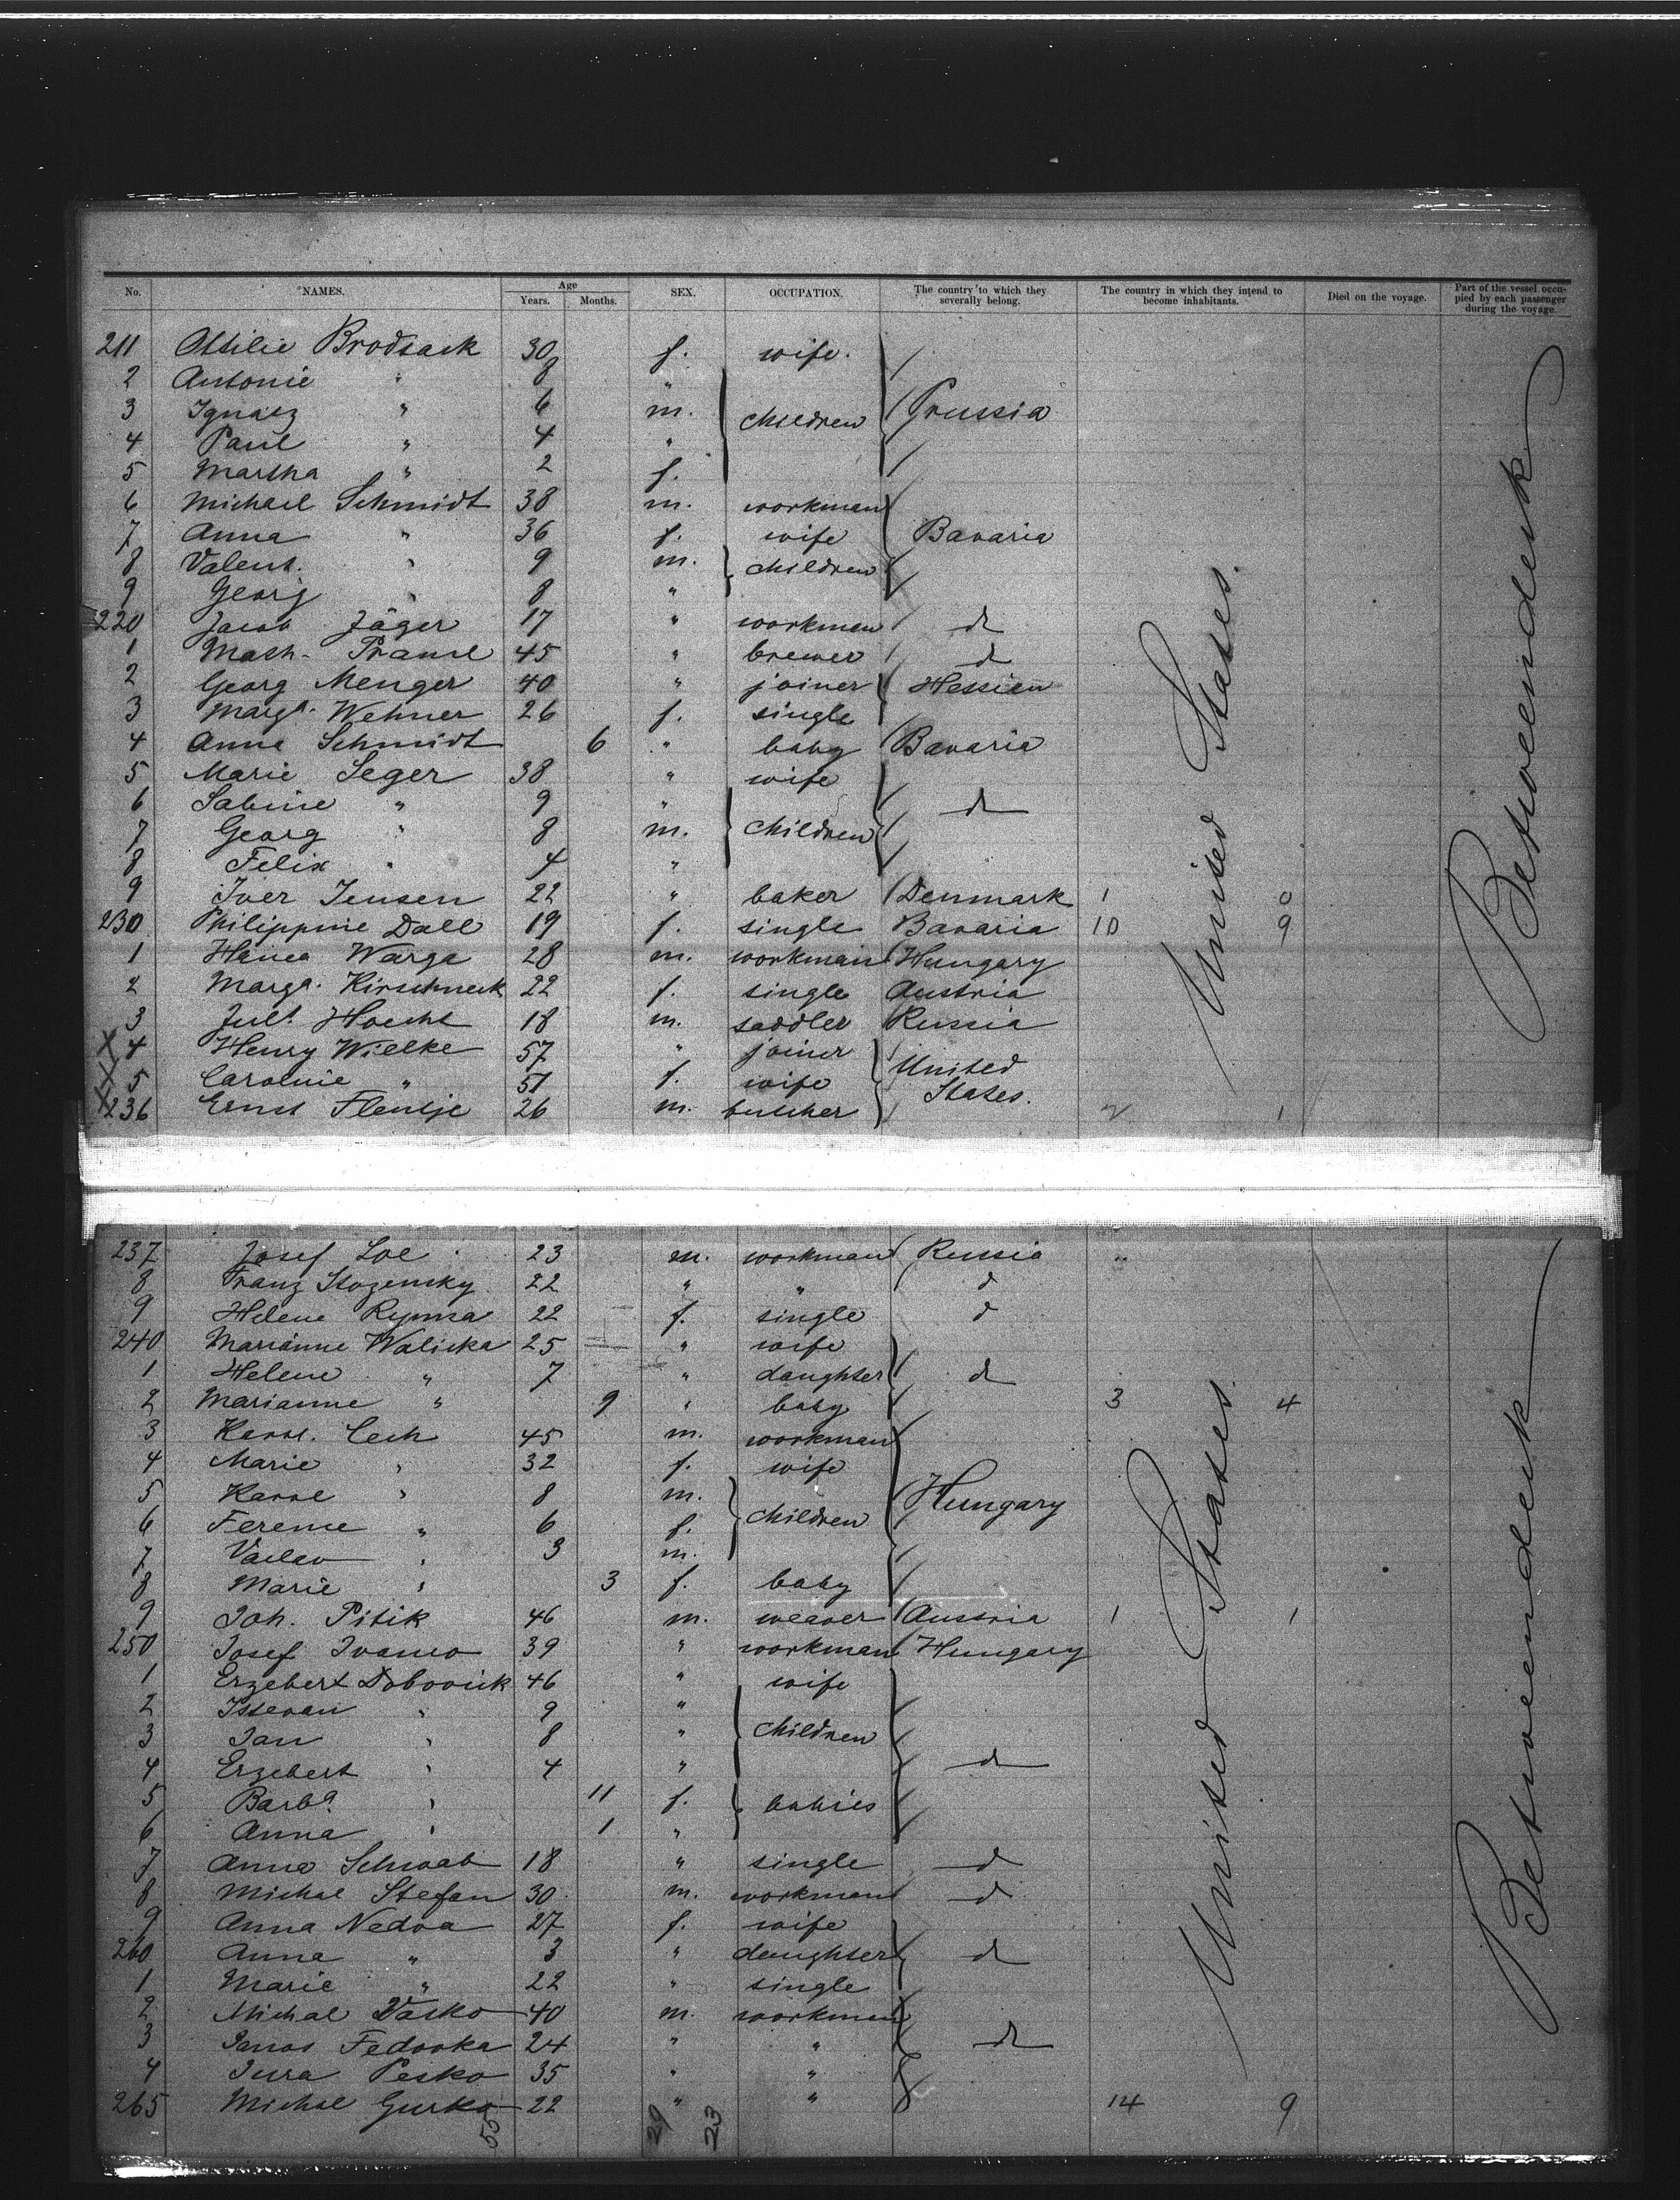 No. NAMES. Age Years. Months. SEX. OCCUPATION. The country to which they severally belong. The country in which they intend to become inhabitants. Died on the voyage. Part of the vessel occupied by each passenger during the voyage.
211 Ottilie Brodsack 30 f. wife.
2 Antonie " 8 "
3 Ignatz " 6 m. children Prussia
4 Paul " 4 "
5 Martha " 2 f.
6 Michael Schmidt 38 m. workman
7 Anna " 36 f. wife Bavaria
8 Valent. " 9 m. children
9 Georg " 8 "
220 Jacob Jäger 17 " workman d
1 Math. 45 " brewer d
2 Georg Menger 40 " joiner Hessien
3 Margt. Wehner 26 f. single
4 Anna Schmidt 6 " baby Bavaria
5 Marie Seger 38 " wife
6 Sabine " 9 " d
7 Georg " 8 m. children
8 Felix " 4 "
9 Iver Jensen 22 " baker Denmark 1 0
230 Philippine Dall 19 f. single Bavaria 10 9
1 Warga 28 m. workman Hungary
2 Marga. Kirschneck 22 f. single Austria
3 Juls. Hoecht 18 m. saddler Russia
X 4 Henry Wielke 57 " joiner United
X 5 Caroline " 51 f. wife States.
X 236 Ernst Flentje 26 m. butcher 2 1
United States.
Betweendeck
237 Josef Loe 23 m. workman Russia "
8 Franz Stozensky 22 " " d
9 Helene Rynsa 22 f. single d
240 Marianne Walicka 25 " wife
1 Helene " 7 " daughter d
2 Marianne " 9 " baby 3 4
3 Cech 45 m. workman
4 Marie " 32 f. wife
5 Karol " 8 m. Hungary
6 Ferenie " 6 f. children
7 Vaclav " 3 m.
8 Marie " 3 f. baby
9 Joh. Pitik 46 m. weaver Austria 1 1
250 Josef Ivanco 39 " workman Hungary
1 Erzebert Dobovick 46 " wife
2 Istevan " 9 "
3 Jan " 8 " children
4 Erzebert " 4 " d
5 Barba. " 11 f. babies
6 Anna " 1 "
7 Anna Schwab 18 " single d
8 Michal Stefan 30 m. workman d
9 Anna Nedva 27 f. wife
260 Anna " 3 " daughter d
1 Marie " 22 " single
2 Michal Vasko 40 m. workman
3 Janos Fedorka 24 " " d
4 Jura Pesko 35 " "
265 Michal Gurko 22 " " 14 9
55 29 23
United States.
Betweendeck